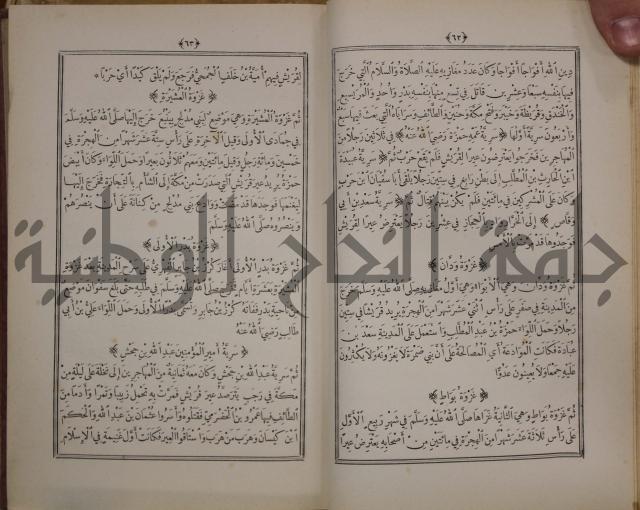 ﴿٦٢﴾
دين الله أفواجا أفواجا وكان عدد مغازيه عليه الصلاة والسلام التي خرج
فيها بنفسه سبعا وعشرين قاتل في تسع منها بنفسه بدر وأحد والمريسيع
والخندق وقريظة وخيبر وفتح مكة وحنين والطائف وسراياه التي بعث فيها سبعا
وأربعون سرية أولها ﴿سرية عمه حمزة رضي الله عنه﴾ في ثلاثين رجلا من
المهاجرين فخرجوا يعترضون عيرا لقريش فلم يقع حرب ثم ﴿سرية عبيدة
ابن الحارث بن المطلب إلى بطن رابغ في ستين رجلا يلقى أبا سفيان بن حرب
وكان على المشركين في مائتين فلم يكن بينهم قتال ثم ﴿سرية سعد بن أبي
وقاص﴾ إلى الخرار واد في الحجاز في عشرين رجلا يعترض عيرا لقريش
فوجدها قد مرت بالأمس
﴿غزوة ودان﴾
ثم غزوة ودان وهي الأبواء وهي أول مغازيه صلى الله عليه وسلم خرج
من المدينة في صفر على رأس اثني عشر شهرا من الهجرة يريد قريشا في ستين
رجلا وحمل اللواء حمزة بن عبد المطلب واستعمل على المدينة سعد بن
عبادة فكانت الموادعة أي المصالحة على أن بني ضمرة لا يغزونه ولا يكثرون
عليه جمعا ولا يعينون عدوا
﴿غزوة بواط﴾
ثم غزوة بواط وهي الثانية غزاها صلى الله عليه وسلم في شهر ربيع الأول
على رأس ثلاثة عشر شهرا من الهجرة في مائتين من أصحابه يعترض عيرا
﴿٦٣﴾
لقريش فيهم أمية بن خلف الجمحي فرجع ولم يلق كيدا أي حربا
﴿غزوة العشيرة﴾
ثم غزوة العشيرة وهي موضع لبني مدلج بينبع خرج إليها صلى الله عليه وسلم
في جمادى الأولى وقيل الآخرة على رأس ستة عشر شهرا من الهجرة في
خمسين ومائة رجل وقيل مائتين ومعهم ثلاثون بعيرا وحمل اللواء وكان أبيض
حمزة يريد عير قريش التي صدرت من مكة إلى الشأم بالتجارة فخرج إليها
ليغنمها فوجدها قد مضت ووادع بني مدلج من كنانة على أن ينصرهم
وينصروه صلى الله عليه وسلم
﴿غزوة بدر الأولى﴾
ثم غزوة بدر الأولى أغار كرز بن جابر الفهري على سرح المدينة بعد غزوة
العشيرة بعشرة أيام فخرج صلى الله عليه وسلم في طلبه حتى بلغ سفوان موضع
من ناحية بدر ففاته كرز بن جابر وتسمى بدرا الأولى وحمل اللواء علي بن أبي
طالب رضي الله عنه
﴿سرية أمير المؤمنين عبد الله بن جحش﴾
ثم سرية عبد الله بن جحش وكان معه ثمانية من المهاجرين إلى نخلة على ليلة من
مكة في رجب يترصد عير قريش فمرت به تحمل زبيبا وتمرا وأدما من
الطائف فيها عمرو بن الحضرمي فقتلوه وأسروا عثمان بن عبد الله والحكم
ابن كيسان وهرب من هرب واستاقوا العير فكانت أول غنيمة في الإسلام
جامعة النجاح الوطنية